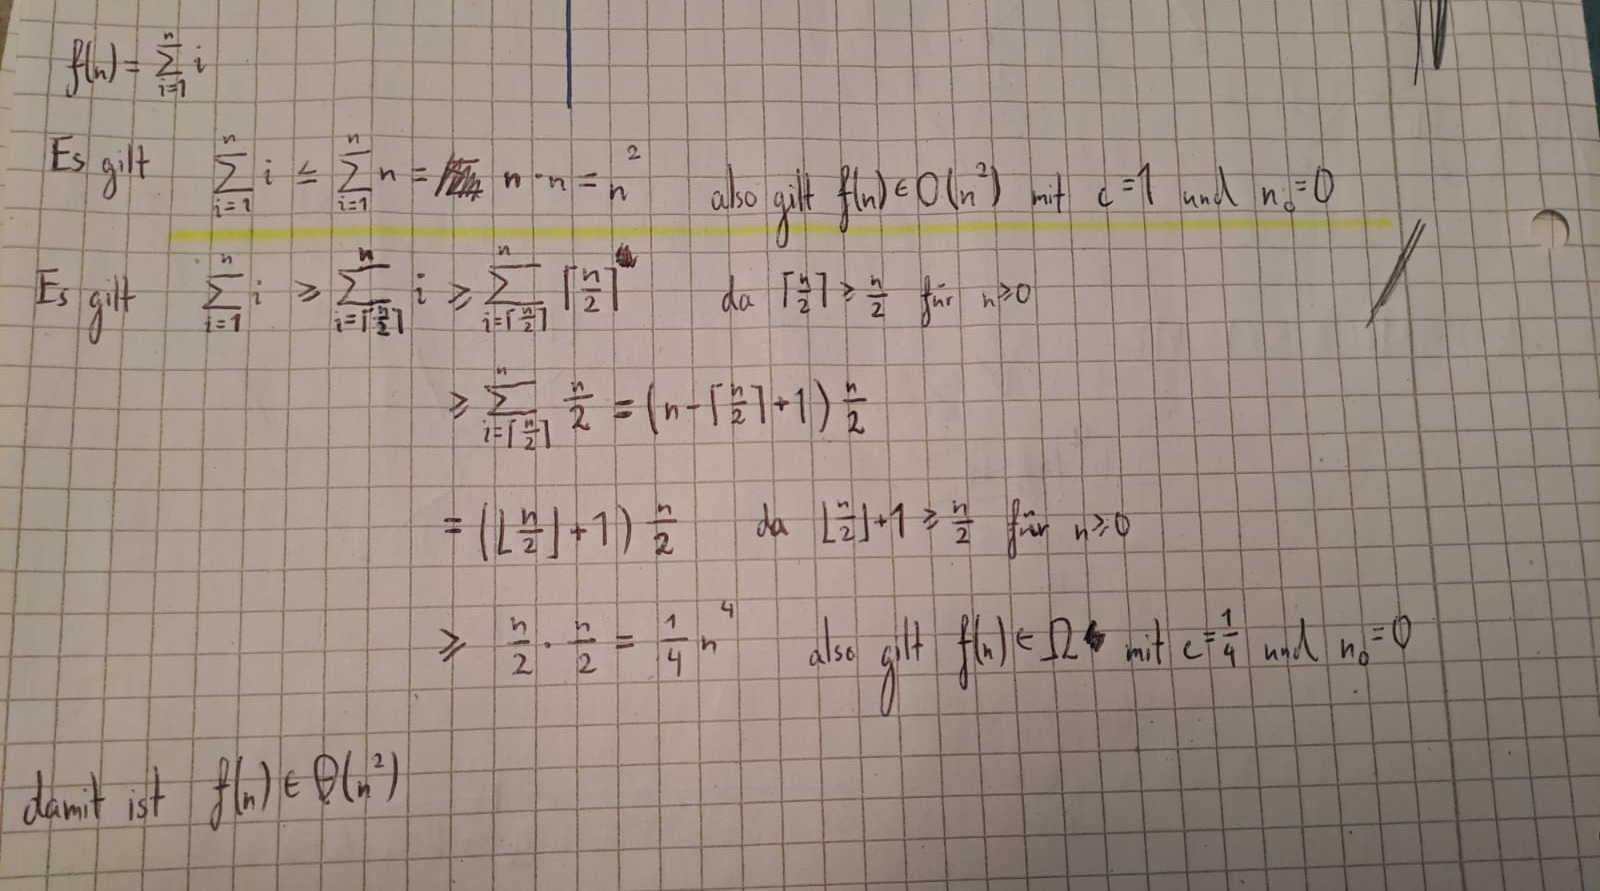 f(n) = ∑_{i=1}^{n} i
Es gilt ∑_{i=1}^{n} i ≤ ∑_{i=1}^{n} n = n · n = n² also gilt f(n) ∈ O(n²) mit c = 1 und n₀ = 0
Es gilt ∑_{i=1}^{n} i ≥ ∑_{i=⌈n/2⌉}^{n} i ≥ ∑_{i=⌈n/2⌉}^{n} ⌈n/2⌉ da ⌈n/2⌉ ≥ n/2 für n ≥ 0
≥ ∑_{i=⌈n/2⌉}^{n} n/2 = (n - ⌈n/2⌉ + 1) n/2
= (⌊n/2⌋ + 1) n/2 da ⌊n/2⌋ + 1 ≥ n/2 für n ≥ 0
≥ n/2 · n/2 = 1/4 n⁴ also gilt f(n) ∈ Ω mit c = 1/4 und n₀ = 0
damit ist f(n) ∈ Θ(n²)